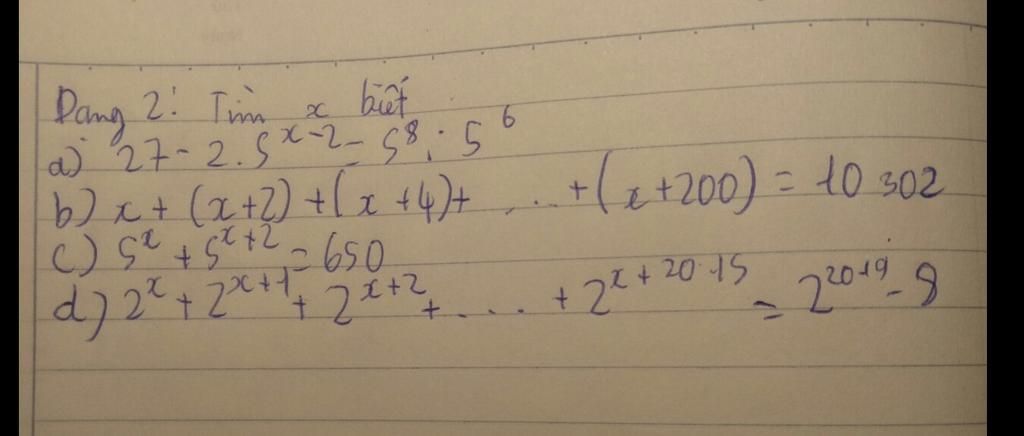 Dạng 2: Tìm x biết
a) 27 - 2.5^{x-2} = 5^8 : 5^6
b) x + (x+2) + (x+4) + ... + (x+200) = 10 302
c) 5^x + 5^{x+2} = 650
d) 2^x + 2^{x+1} + 2^{x+2} + .... + 2^{x+2015} = 2^{2019} - 8